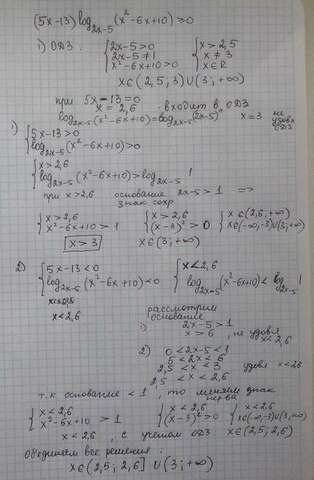 (5x-13) log₂ₓ₋₅ (x²-6x+10) ≥ 0
1) ОДЗ: { 2x-5>0 { x>2,5
2x-5≠1 x≠3
x²-6x+10>0 x∈R
x∈(2,5; 3)∪(3;+∞)
при 5x-13=0
x=2,6 - входит в ОДЗ
log₂ₓ₋₅(x²-6x+10)=log₂ₓ₋₅(2x-5)⁰ x=3 не удовл ОДЗ
1) { 5x-13>0
log₂ₓ₋₅(x²-6x+10)>0
{ x>2,6
log₂ₓ₋₅(x²-6x+10)>log₂ₓ₋₅1
при x>2,6 основание 2x-5>1 =>
знак сохр
{ x>2,6 { x>2,6 { x∈(2,6;+∞)
x²-6x+10>1 (x-3)²>0 x∈(-∞;-3)∪(3;+∞)
x>3 x∈(3;+∞)
2) { 5x-13<0 { x<2,6
log₂ₓ₋₅(x²-6x+10)<0 log₂ₓ₋₅(x²-6x+10)<log₂ₓ₋₅1
x<2,6
рассмотрим
основание
1) 2x-5>1
, не удовл x<2,6
2) 0<2x-5<1
5<2x<6
2,5<x<3 удовл x<2,6
2,5<x<2,6
т.к основание <1, то меняем знак
нер-ва
{ x<2,6 { x<2,6 { x<2,6
x²-6x+10>1 (x-3)²>0 x∈(-∞;-3)∪(3;+∞)
x<2,6, с учетом ОДЗ x∈(2,5; 2,6)
Объединяем все решения:
x∈(2,5; 2,6]∪(3;+∞)